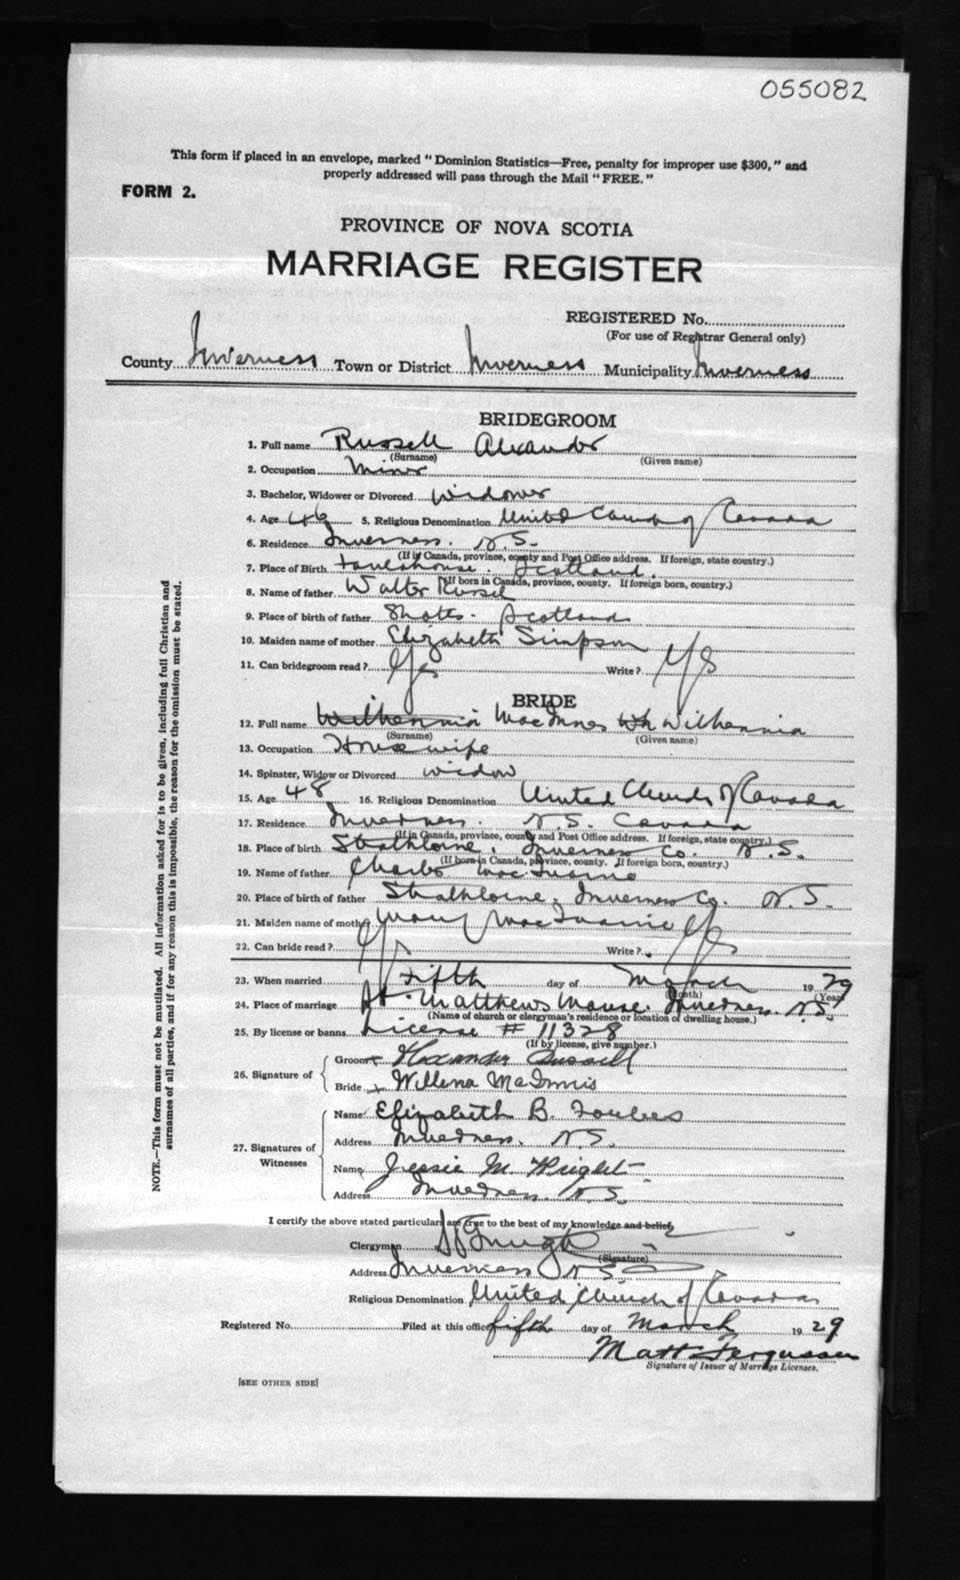 055082
This form if placed in an envelope, marked "Dominion Statistics—Free, penalty for improper use $300," and
properly addressed will pass through the Mail "FREE."
FORM 2.
PROVINCE OF NOVA SCOTIA
MARRIAGE REGISTER
REGISTERED No.
(For use of Registrar General only)
County Inverness Town or District Inverness Municipality Inverness
BRIDEGROOM
1. Full name Russell Alexander
(Surname) (Given name)
2. Occupation Miner
3. Bachelor, Widower or Divorced Widower
4. Age 46 5. Religious Denomination United Church of Canada
6. Residence Inverness. N.S.
(If in Canada, province, county and Post Office address. If foreign, state country.)
7. Place of Birth Scotland.
(If born in Canada, province, county. If foreign born, country.)
8. Name of father Walter Russel
9. Place of birth of father Shotts. Scotland
10. Maiden name of mother Elizabeth Simpson
11. Can bridegroom read? Yes Write? Yes
BRIDE
12. Full name MacInnes Wilhennia
(Surname) (Given name)
13. Occupation Housewife
14. Spinster, Widow or Divorced widow
15. Age 48 16. Religious Denomination United Church of Canada
17. Residence Inverness. N.S. Canada
(If in Canada, province, county and Post Office address. If foreign, state country.)
18. Place of birth Strathlorne, Inverness Co. N.S.
(If born in Canada, province, county. If foreign born, country.)
19. Name of father Charles
20. Place of birth of father Strathlorne, Inverness Co. N.S.
21. Maiden name of mother Mary
22. Can bride read? Yes Write? Yes
23. When married Fifth day of March 1929
(Month) (Year)
24. Place of marriage St. Matthews Manse. Inverness. N.S.
(Name of church or clergyman's residence or location of dwelling house.)
25. By license or banns License # 11328
(If by license, give number.)
26. Signature of
Groom x Alexander Russell
Bride x Willena McInnis
27. Signatures of Witnesses
Name Elizabeth B. Forbes
Address Inverness. N.S.
Name Jessie M. Wright
Address Inverness N.S.
I certify the above stated particulars are true to the best of my knowledge and belief,
Clergyman
(Signature)
Address Inverness N.S.
Religious Denomination United Church of Canada
Registered No. Filed at this office fifth day of March 1929
Matt Ferguson
Signature of Issuer of Marriage Licenses.
[SEE OTHER SIDE]
NOTE.—This form must not be mutilated. All information asked for is to be given, including full Christian and
surnames of all parties, and if for any reason this is impossible, the reason for the omission must be stated.